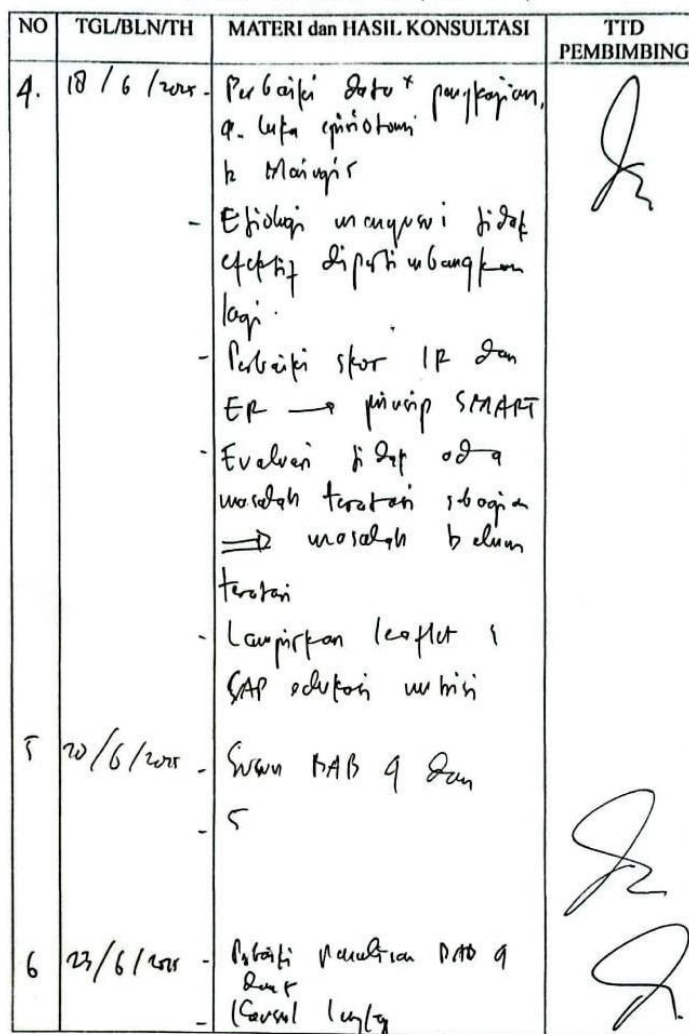 NO TGL/BLN/TH MATERI dan HASIL KONSULTASI TTD
PEMBIMBING
4. 18 / 6 / 2025 - Perbaiki data² pengkajian,
luka episiotomi
- Etiologi menyusui tidak
efektif dipertimbangkan
lagi.
- Perbaiki skor IR dan
ER → prinsip SMART
- Evaluasi tidak ada
masalah teratasi sebagian
⇒ masalah belum
teratasi
- Lampirkan leaflet &
SAP edukasi nutrisi
5 20/6/2025 - Susun BAB 4 dan
- 5
6 23/6/2025 - Perbaiki penulisan BAB 4
dan 5
-